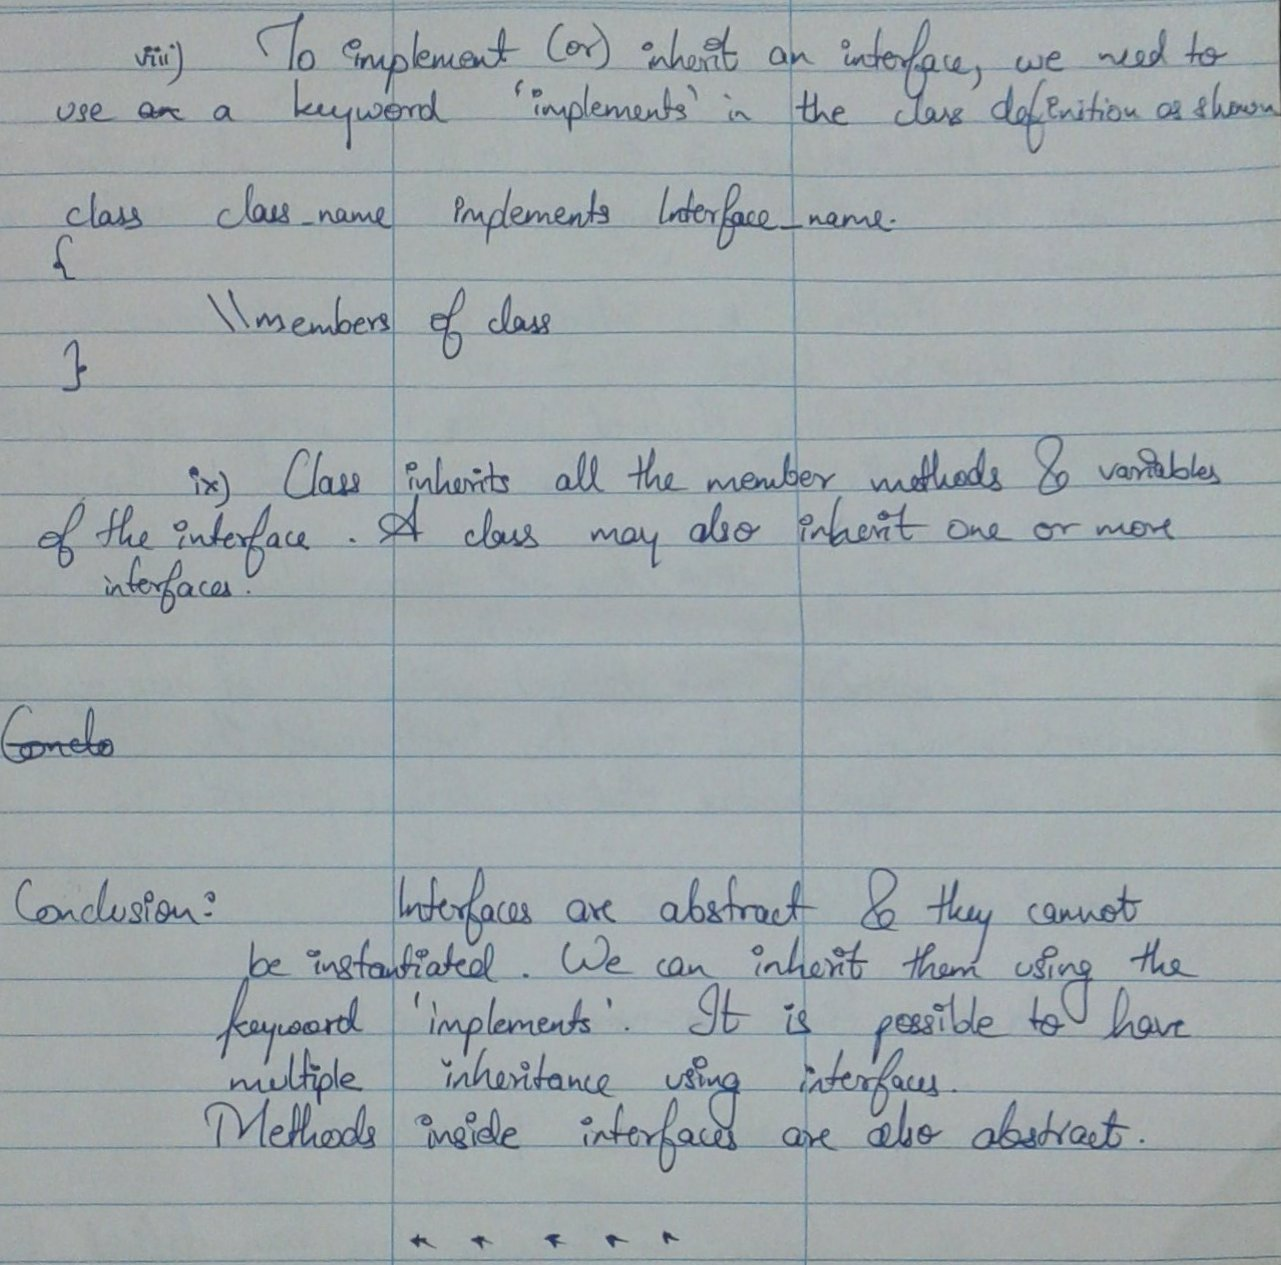 viii) To implement (or) inherit an interface, we need to
use an a keyword 'implements' in the class definition as shown
class class_name implements Interface_name.
{
\\members of class
}
ix) Class inherits all the member methods & variables
of the interface. A class may also inherit one or more
interfaces.
Conclo
Conclusion: Interfaces are abstract & they cannot
be instantiated. We can inherit them using the
keyword 'implements'. It is possible to have
multiple inheritance using interfaces.
Methods inside interfaces are also abstract.